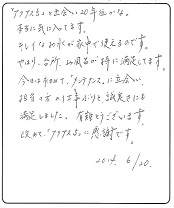 「アクアス5」と出会い20年位かな。
本当に気に入ってます。
キレイなお水が家中で使えるのです。
やはり、台所、お風呂が特に満足してます。
今日は初めて、「メンテナンス」に立会い、
担当の方の仕事ぶりと誠実さにも
満足しました。有難うございます。
改めて、「アクアス5」に感謝です。
2019. 6/20.